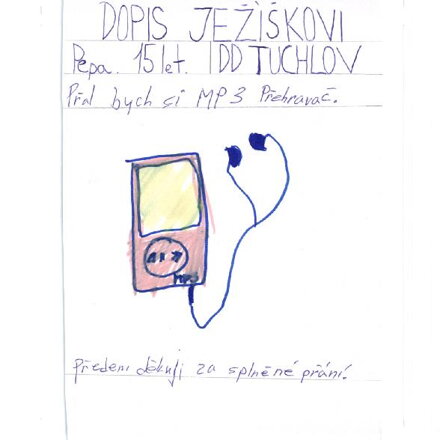 DOPIS JEŽÍŠKOVI
Pepa. 15 let. DD TUCHLOV
Přál bych si MP3 Přehravač.
MP3
Předem děkuji za splněné přání.